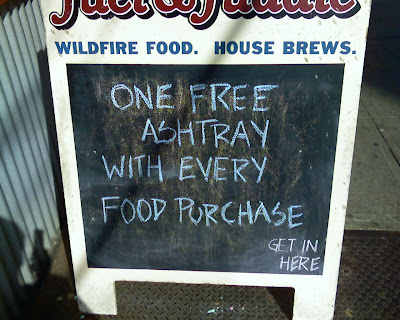 Fuel & Fuddle
WILDFIRE FOOD. HOUSE BREWS.
ONE FREE
ASHTRAY
WITH EVERY
FOOD PURCHASE
GET IN
HERE